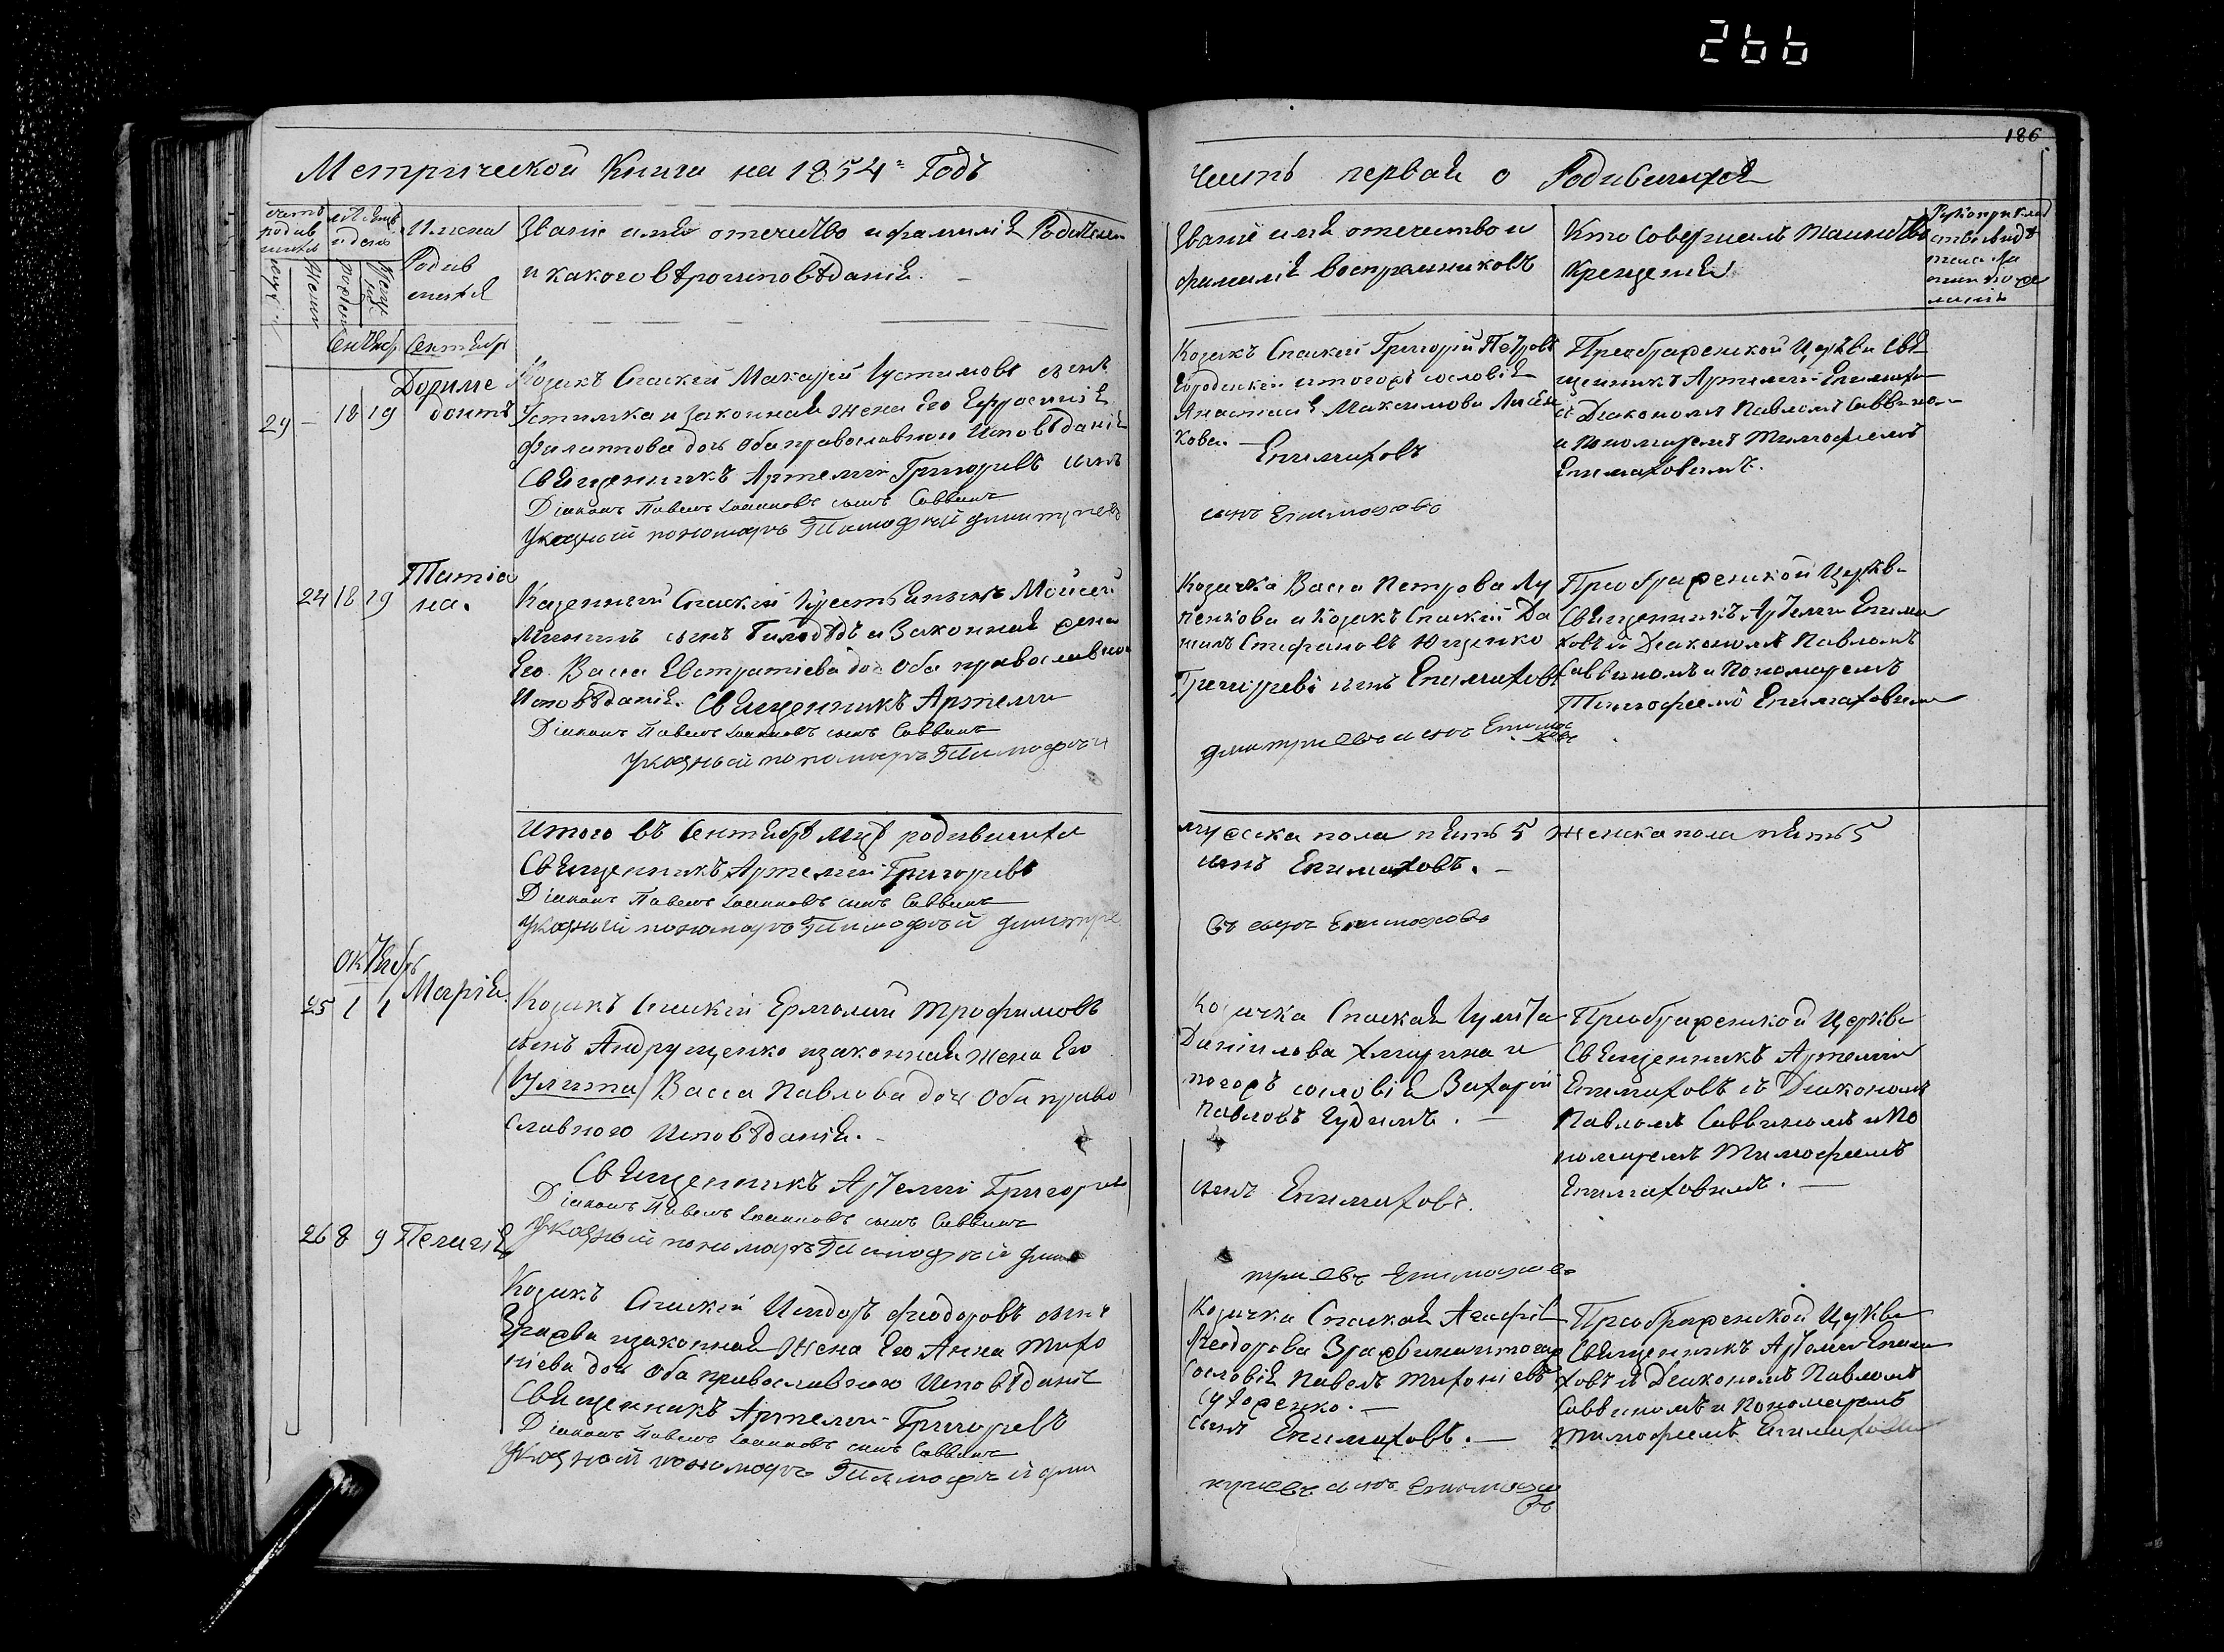 266
186
Метрической Книги на 1854 Годъ
Часть первая о Родившихся
Имена
Родив
шихся
Званіе имя отечество и фамилія Родителей
и какого вѣроисповѣданія.
Званіе имя отечество и
фамилія воспріемниковъ
Кто совершалъ таинство
крещенія
Сентябр
29 - 18 19
Козакъ Спаскій Макарій Іустиновъ сынъ
Устимка и законная жена его Евфросинія
Филиппова дочь оба православнаго исповѣданія
Священникъ Артемій Григорьевъ сынъ
Діаконъ Павелъ Іоанновъ сынъ Саввинъ
Указный пономарь Тимофей Димитріевъ
Козакъ Спаский Григорій Петровъ
Анастасія Максимова
кова.
Епимаховъ
сынъ Епимаховъ
Преображенской Церкви Свя
щенникъ Артемій Епимахо
съ Діакономъ Павломъ Саввино
и Пономаремъ Тимофеемъ
Епимаховымъ.
24 18 19
Татіа
на.
Казенный Спаский Крестьянинъ Мойсей
сынъ и Законная жена
Его Васса Евстратіева доч Оба православно
Исповѣданія. Священникъ Артемій
Діаконъ Павелъ Іоанновъ сынъ Саввинъ
Указный пономарь Тимофей
Козачка Васса Петрова Лу
пенкова и Козакъ Спаский Да
нилъ Стефановъ Ющенко
Григорьевъ сынъ Епимаховъ
Димитріевъ сынъ Епима
ховъ
Преображенской Церкви
Священникъ Артемій Епима
ховъ съ Діакономъ Павломъ
Саввиномъ и Пономаремъ
Тимофеемъ Епимаховымъ
Итого въ Сентябрѣ мцѣ родившихся
Священникъ Артемій Григорьевъ
Діаконъ Павелъ Іоанновъ сынъ Саввинъ
Указный пономарь Тимофей Димитріе
мужска пола пять 5 женска пола пять 5
сынъ Епимаховъ.
въ сынъ Епимаховъ
Октябрь
25 1 1
Марія.
Козакъ Спаскій Ермолай Трофимовъ
сынъ Андрущенко и законная жена Его
Улита Васса Павлова доч Оба право
славного Исповѣданія.
Священникъ Артемій Григорьевъ
Діаконъ Павелъ Іоанновъ сынъ Саввинъ
Указный пономарь Тимофей Дими
Козачка Спаская Іулита
Даніилова и
тогожъ сословія Захарій
Павловъ Гудимъ.
сынъ Епимаховъ.
тріевъ Епимахов
Преображенской Церкви
Священникъ Артемій
Епимаховъ съ Діакономъ
Павломъ Саввиномъ и По
номаремъ Тимофеемъ
Епимаховымъ.
26 8 9
Пелагія
Козакъ Спаскій Исидоръ Феодоровъ сынъ
и законная Жена Его Анна Тихо
ніева доч Оба православного Исповѣданія
Священникъ Артемій Григорьевъ
Діаконъ Павелъ Іоанновъ сынъ Саввинъ
Указный пономарь Тимофей Дими
Козачка Спаская Агафія
Феодорова и тогож
сословія Павелъ Тихоніевъ
сынъ Епимаховъ.
тріевъ сынъ Епимахо
въ
Преображенской Церкви
Священникъ Артемій Епима
ховъ съ Діакономъ Павломъ
Саввиномъ и Пономаремъ
Тимофеемъ Епимаховым